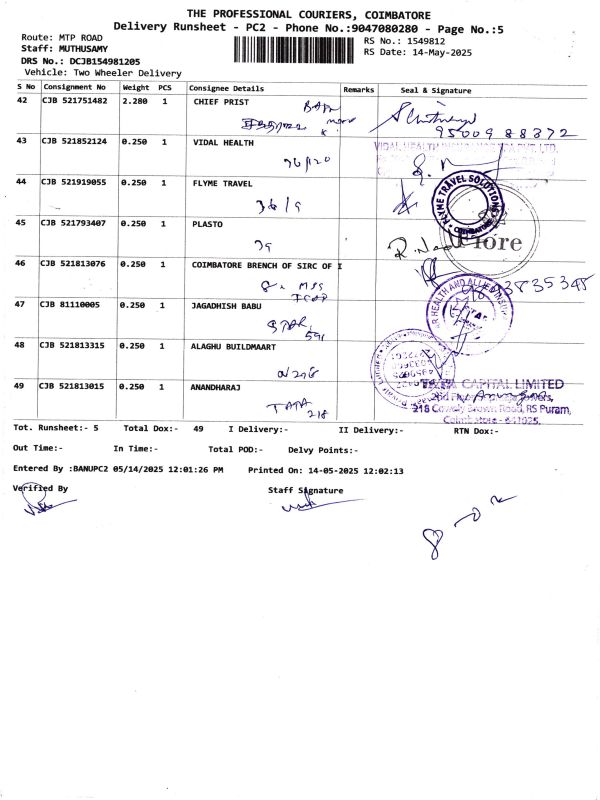 THE PROFESSIONAL COURIERS, COIMBATORE
Delivery Runsheet - PC2 - Phone No.:9047080280 - Page No.:5
Route: MTP ROAD
RS No.: 1549812
Staff: MUTHUSAMY
RS Date: 14-May-2025
DRS No.: DCJB154981205
Vehicle: Two Wheeler Delivery
S No Consignment No Weight PCS Consignee Details Remarks Seal & Signature
42 CJB 521751482 2.280 1 CHIEF PRIST
9500988372
43 CJB 521852124 0.250 1 VIDAL HEALTH
96/120
44 CJB 521919055 0.250 1 FLYME TRAVEL
36/9
FLYME TRAVEL SOLOTIONS
COIMBATORE
45 CJB 521793407 0.250 1 PLASTO
Fiore
46 CJB 521813076 0.250 1 COIMBATORE BRENCH OF SIRC OF I
47 CJB 81110005 0.250 1 JAGADHISH BABU
STAR
591
48 CJB 521813315 0.250 1 ALAGHU BUILDMAART
49 CJB 521813015 0.250 1 ANANDHARAJ
TATA
218
TATA CAPITAL LIMITED
218 Cowly Brown Road, RS Puram,
Coimbatore - 641025.
Tot. Runsheet:- 5 Total Dox:- 49 I Delivery:- II Delivery:- RTN Dox:-
Out Time:- In Time:- Total POD:- Delvy Points:-
Entered By :BANUPC2 05/14/2025 12:01:26 PM Printed On: 14-05-2025 12:02:13
Verified By Staff Signature